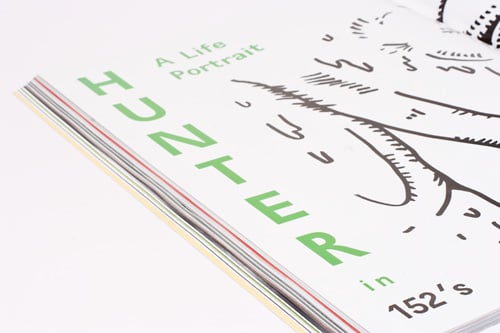 A Life
Portrait
HUNTER
in
152's